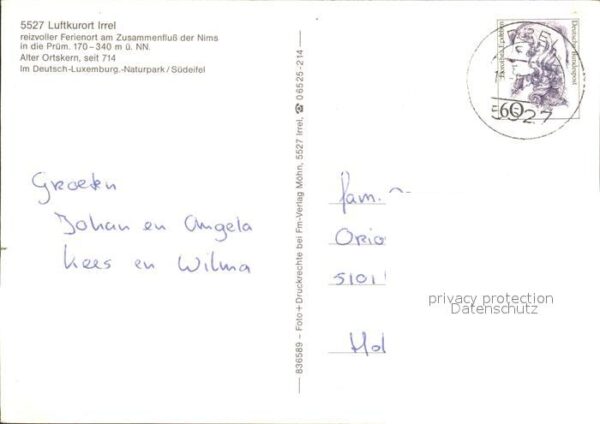 5527 Luftkurort Irrel
reizvoller Ferienort am Zusammenfluß der Nims
in die Prüm. 170–340 m ü. NN.
Alter Ortskern, seit 714
Im Deutsch-Luxemburg.-Naturpark / Südeifel
Groeten
Johan en Angela
Kees en Wilma
836589 – Foto + Druckrechte bei Fm-Verlag Möhn, 5527 Irrel, ☎ 06525-214
Dorothea Erxleben
Deutsche Bundespost
60
5527
fam.
Orio
5101
Hol
privacy protection
Datenschutz